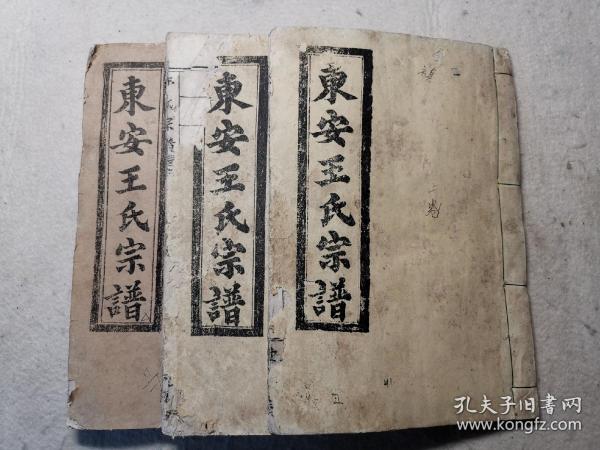 東安王氏宗譜
東安王氏宗譜
東安王氏宗譜
孔夫子旧书网
www.kongfz.com